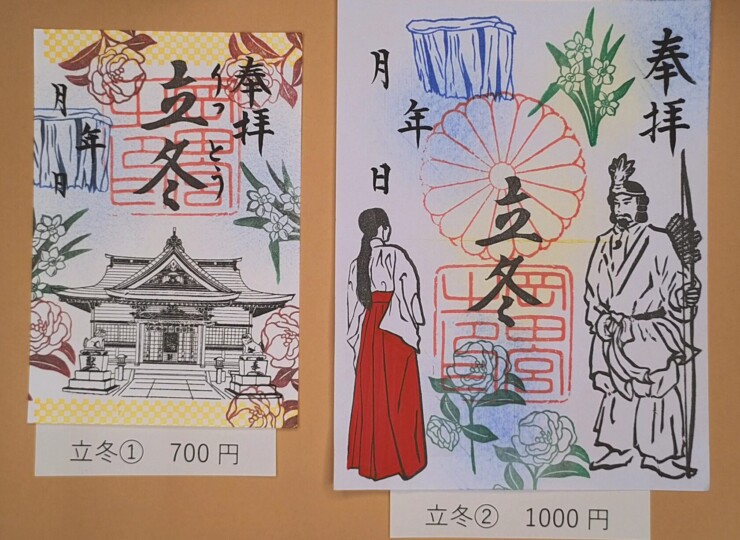 奉拝
りっとう
立冬
年
月日
立冬① 700円
奉拝
立冬
年
月日
立冬② 1000円